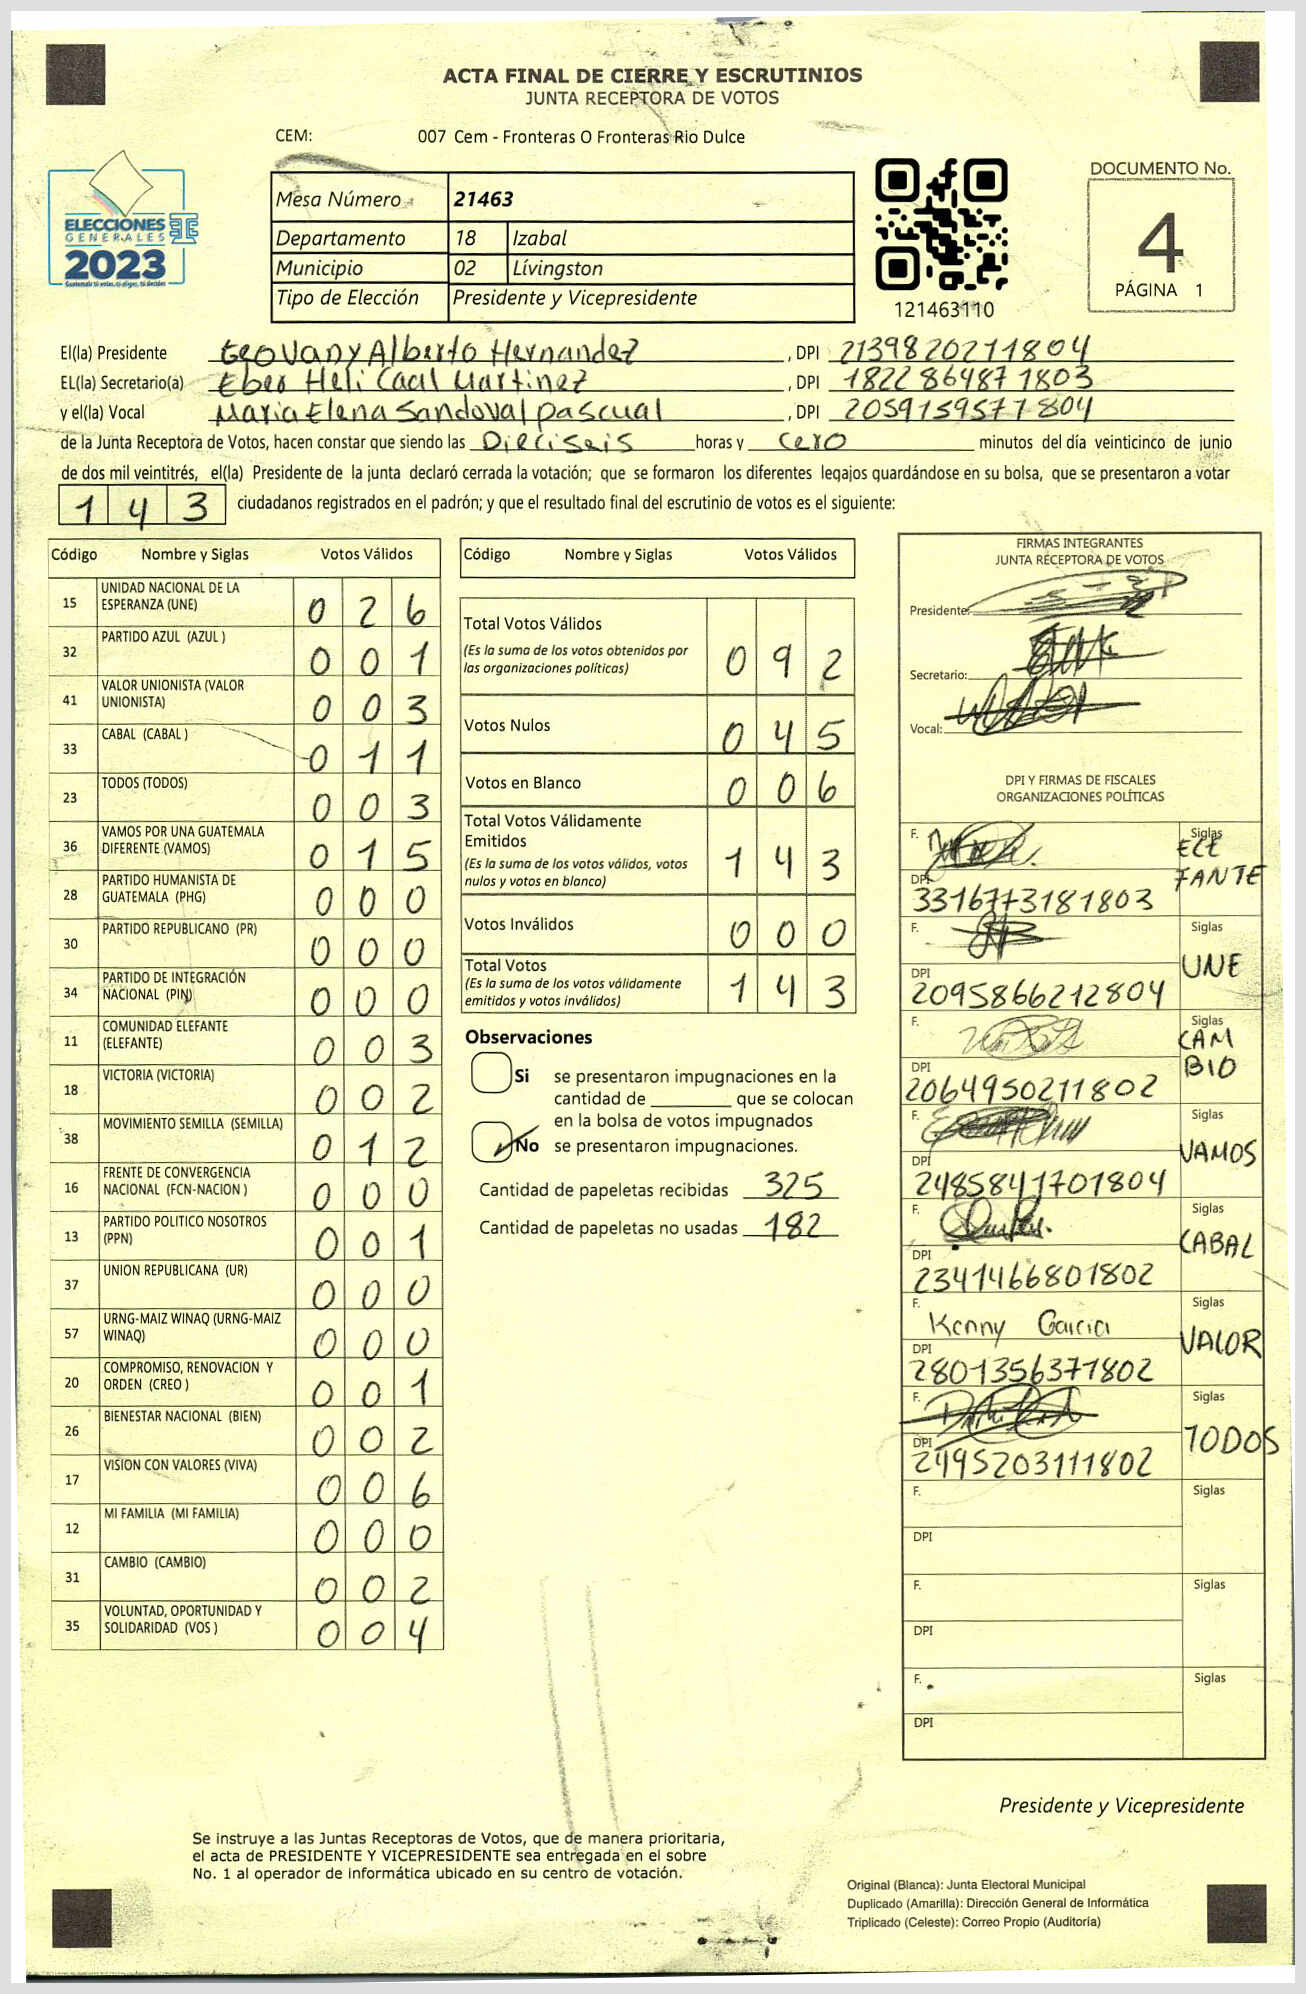 ACTA FINAL DE CIERRE Y ESCRUTINIOS
JUNTA RECEPTORA DE VOTOS
CEM: 007 Cem - Fronteras O Fronteras Rio Dulce
ELECCIONES
GENERALES
2023
Guatemala tú votas, tú eliges, tú decides
Mesa Número 21463
Departamento 18 Izabal
Municipio 02 Lívingston
Tipo de Elección Presidente y Vicepresidente
121463110
DOCUMENTO No.
4
PÁGINA 1
El(la) Presidente Geovany Alberto Hernandez , DPI 2139820211804
EL(la) Secretario(a) Eber Heli Caal Martinez , DPI 1822864871803
y el(la) Vocal Maria Elena Sandoval pascual , DPI 2059159571804
de la Junta Receptora de Votos, hacen constar que siendo las Dieciseis horas y cero minutos del día veinticinco de junio
de dos mil veintitrés, el(la) Presidente de la junta declaró cerrada la votación; que se formaron los diferentes legajos guardándose en su bolsa, que se presentaron a votar
1 4 3 ciudadanos registrados en el padrón; y que el resultado final del escrutinio de votos es el siguiente:
Código Nombre y Siglas Votos Válidos
15 UNIDAD NACIONAL DE LA ESPERANZA (UNE) 0 2 6
32 PARTIDO AZUL (AZUL ) 0 0 1
41 VALOR UNIONISTA (VALOR UNIONISTA) 0 0 3
33 CABAL (CABAL ) 0 1 1
23 TODOS (TODOS) 0 0 3
36 VAMOS POR UNA GUATEMALA DIFERENTE (VAMOS) 0 1 5
28 PARTIDO HUMANISTA DE GUATEMALA (PHG) 0 0 0
30 PARTIDO REPUBLICANO (PR) 0 0 0
34 PARTIDO DE INTEGRACIÓN NACIONAL (PIN) 0 0 0
11 COMUNIDAD ELEFANTE (ELEFANTE) 0 0 3
18 VICTORIA (VICTORIA) 0 0 2
38 MOVIMIENTO SEMILLA (SEMILLA) 0 1 2
16 FRENTE DE CONVERGENCIA NACIONAL (FCN-NACION ) 0 0 0
13 PARTIDO POLITICO NOSOTROS (PPN) 0 0 1
37 UNION REPUBLICANA (UR) 0 0 0
57 URNG-MAIZ WINAQ (URNG-MAIZ WINAQ) 0 0 0
20 COMPROMISO, RENOVACION Y ORDEN (CREO ) 0 0 1
26 BIENESTAR NACIONAL (BIEN) 0 0 2
17 VISION CON VALORES (VIVA) 0 0 6
12 MI FAMILIA (MI FAMILIA) 0 0 0
31 CAMBIO (CAMBIO) 0 0 2
35 VOLUNTAD, OPORTUNIDAD Y SOLIDARIDAD (VOS ) 0 0 4
Código Nombre y Siglas Votos Válidos
Total Votos Válidos
(Es la suma de los votos obtenidos por las organizaciones políticas) 0 9 2
Votos Nulos 0 4 5
Votos en Blanco 0 0 6
Total Votos Válidamente Emitidos
(Es la suma de los votos válidos, votos nulos y votos en blanco) 1 4 3
Votos Inválidos 0 0 0
Total Votos
(Es la suma de los votos válidamente emitidos y votos inválidos) 1 4 3
Observaciones
Si se presentaron impugnaciones en la
cantidad de ________ que se colocan
en la bolsa de votos impugnados
No se presentaron impugnaciones.
Cantidad de papeletas recibidas 325
Cantidad de papeletas no usadas 182
FIRMAS INTEGRANTES
JUNTA RECEPTORA DE VOTOS
Presidente:
Secretario:
Vocal:
DPI Y FIRMAS DE FISCALES
ORGANIZACIONES POLÍTICAS
F. Siglas
ELE
FANTE
DPI 3316773181803
F. Siglas
UNE
DPI 2095866212804
F. Siglas
CAM
BIO
DPI 2064950211802
F. Siglas
VAMOS
DPI 2485841701804
F. Siglas
CABAL
DPI 2341466801802
F. Kenny Garcia Siglas
VALOR
DPI 2801356371802
F. Siglas
TODOS
DPI 2495203111802
F. Siglas
DPI
F. Siglas
DPI
F. Siglas
DPI
Presidente y Vicepresidente
Se instruye a las Juntas Receptoras de Votos, que de manera prioritaria,
el acta de PRESIDENTE Y VICEPRESIDENTE sea entregada en el sobre
No. 1 al operador de informática ubicado en su centro de votación.
Original (Blanca): Junta Electoral Municipal
Duplicado (Amarilla): Dirección General de Informática
Triplicado (Celeste): Correo Propio (Auditoría)